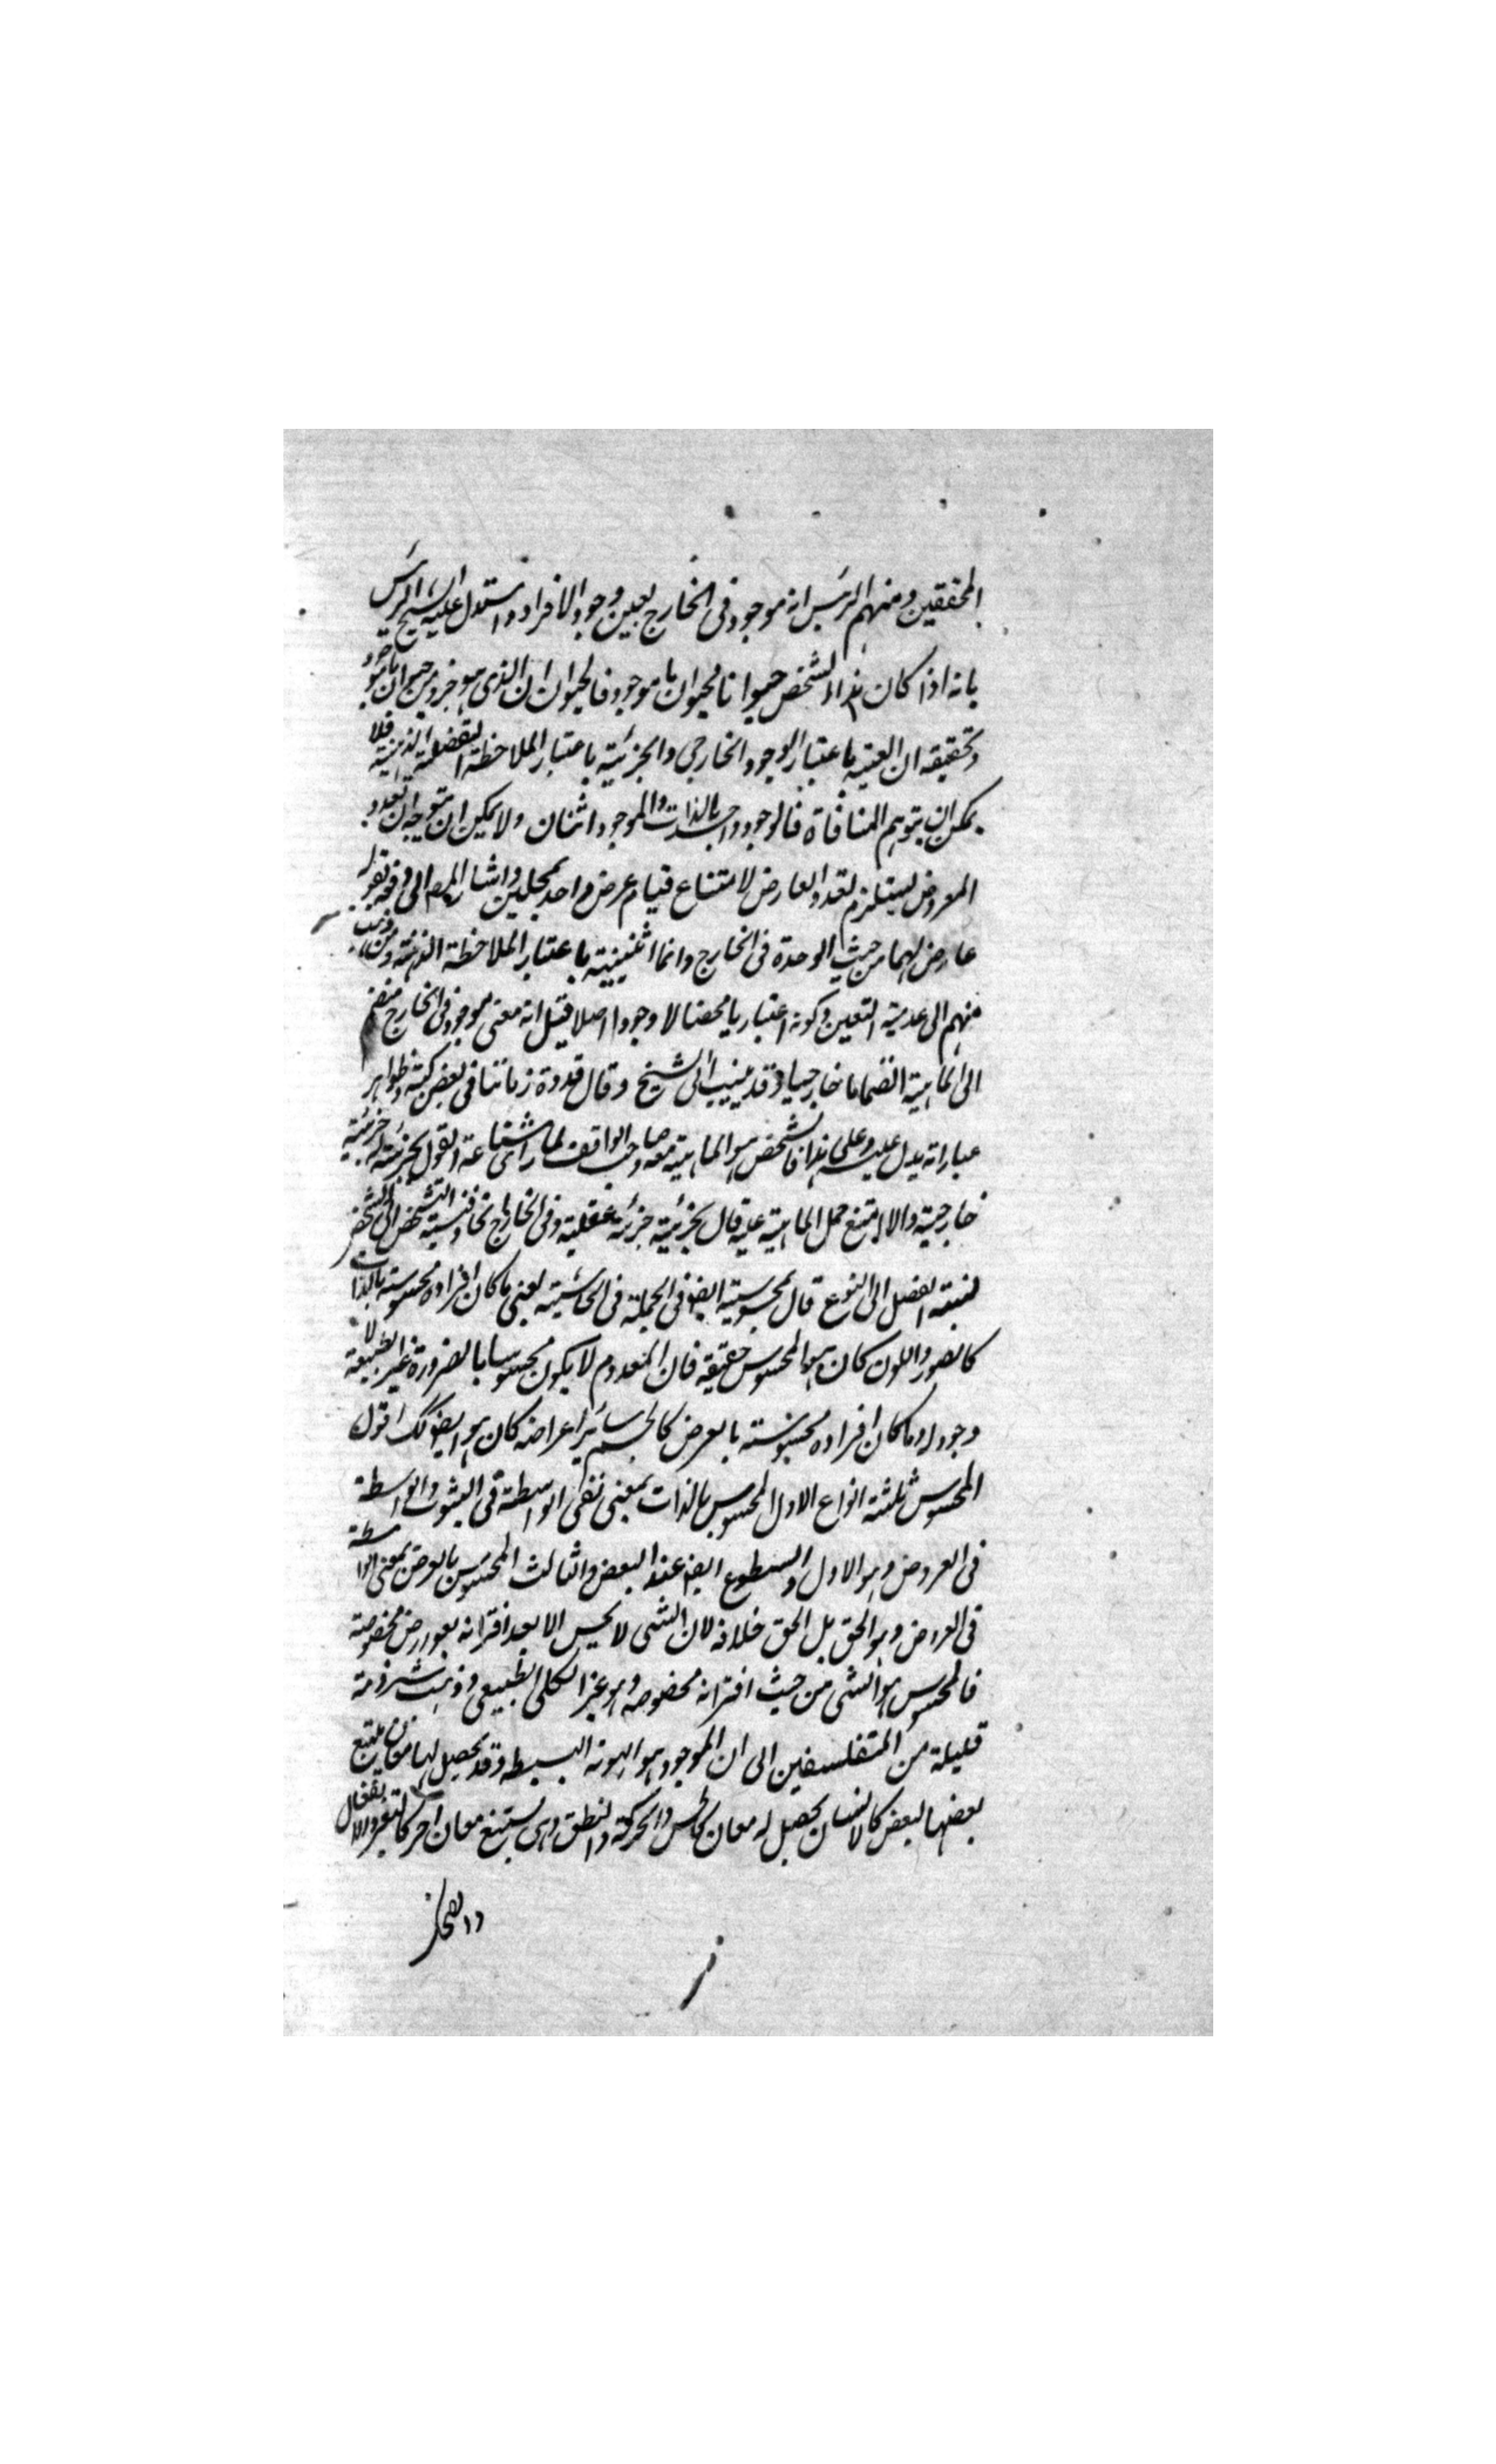 المحققين ومنهم الرئيس انه موجود في الخارج بعين وجود الافراد واستدل عليه الشيخ الرئيس
بانه اذا كان هذا الشخص حيوانا فالحيوان ما موجود فالحيوان الذي هو جزء من حيوان ما موجود
وتحقيقه ان العينية باعتبار الوجود الخارجي والجزئية باعتبار الملاحظة التفصيلية الذهنية فلا
يمكن ان يتوهم المنافاة فالوجود واحد بالذات والموجود اثنان ولا يمكن ان يتوجه ان تعدد
المعروض يستلزم تعدد العارض لامتناع قيام عرض واحد بمحلين واشار المص الى دفعه بقوله
عارض لهما من حيث الوحدة في الخارج وانما اثنينية باعتبار الملاحظة الذهنية ومن ذهب
منهم الى عدمية التعين وكونه اعتباريا محضا لا وجود اصلا قيل انه معنى موجود في الخارج منضم
الى الماهية انضماما خارجيا وقد ينسب الى الشيخ وقال قدوة زماننا في بعض كتبه وظواهر
عباراته يدل عليه وعلى هذا فالشخص هو الماهية معه وصاحب المواقف لما راى شناعة القول بجزئيته جزئية
خارجية والا لامتنع حمل الماهية عليه قال بجزئيته جزئية عقلية وفي الخارج اتحاد ونسبة التشخص الى الشخص
نسبة الفصل الى النوع قال بمحسوسيته ايضا في الجملة في الحاشية يعني ما كان افراده محسوسة بالذات
كالضوء واللون كان هو المحسوس حقيقة فان المعدوم لا يكون محسوسا بالضرورة غير الطبيعة لا
وجود له وما كان افراده محسوسة بالعرض كالجسم وسائر اعراضه كان هو ايضا كك اقول
المحسوس ثلثة انواع الاول المحسوس بالذات بمعنى نفي الواسطة في الثبوت والواسطة
في العروض وهو الاول والسطوح ايضا عند البعض والثالث المحسوس بالعرض بمعنى الواسطة
في العروض وهو الحق بل الحق خلافه لان الشئ لا يحس الا بعد اقترانه بعوارض مخصوصة
فالمحسوس هو الشئ من حيث اقترانه مخصوصه وهو غير الكلي الطبيعي وذهب شرذمة
قليلة من المتفلسفين الى ان الموجود هو الهوية البسيطة وقد يحصل لها معان يتبع
بعضها لبعض كالانسان يحصل له معان كالحس والحركة والنطق وهي يستتبع معان اخر كالتغير والانفعال